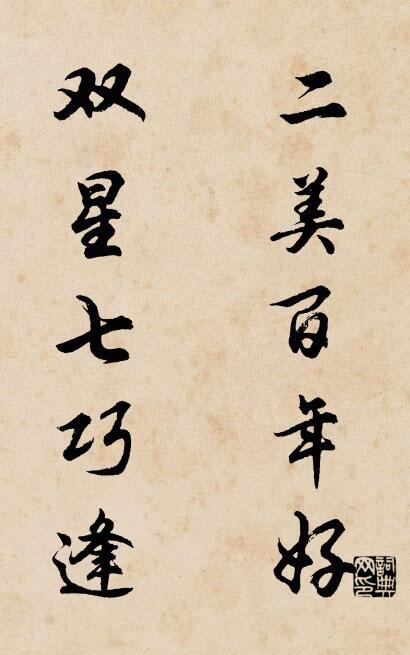 二美百年好
双星七巧逢
詞典网印